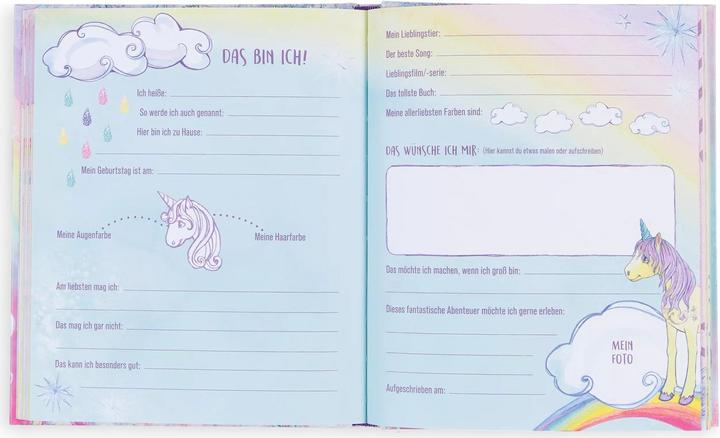 DAS BIN ICH!
Ich heiße:
So werde ich auch genannt:
Hier bin ich zu Hause:
Mein Geburtstag ist am:
Meine Augenfarbe
Meine Haarfarbe
Am liebsten mag ich:
Das mag ich gar nicht:
Das kann ich besonders gut:
Mein Lieblingstier:
Der beste Song:
Lieblingsfilm/-serie:
Das tollste Buch:
Meine allerliebsten Farben sind:
DAS WÜNSCHE ICH MIR: (Hier kannst du etwas malen oder aufschreiben)
Das möchte ich machen, wenn ich groß bin:
Dieses fantastische Abenteuer möchte ich gerne erleben:
MEIN
FOTO
Aufgeschrieben am: